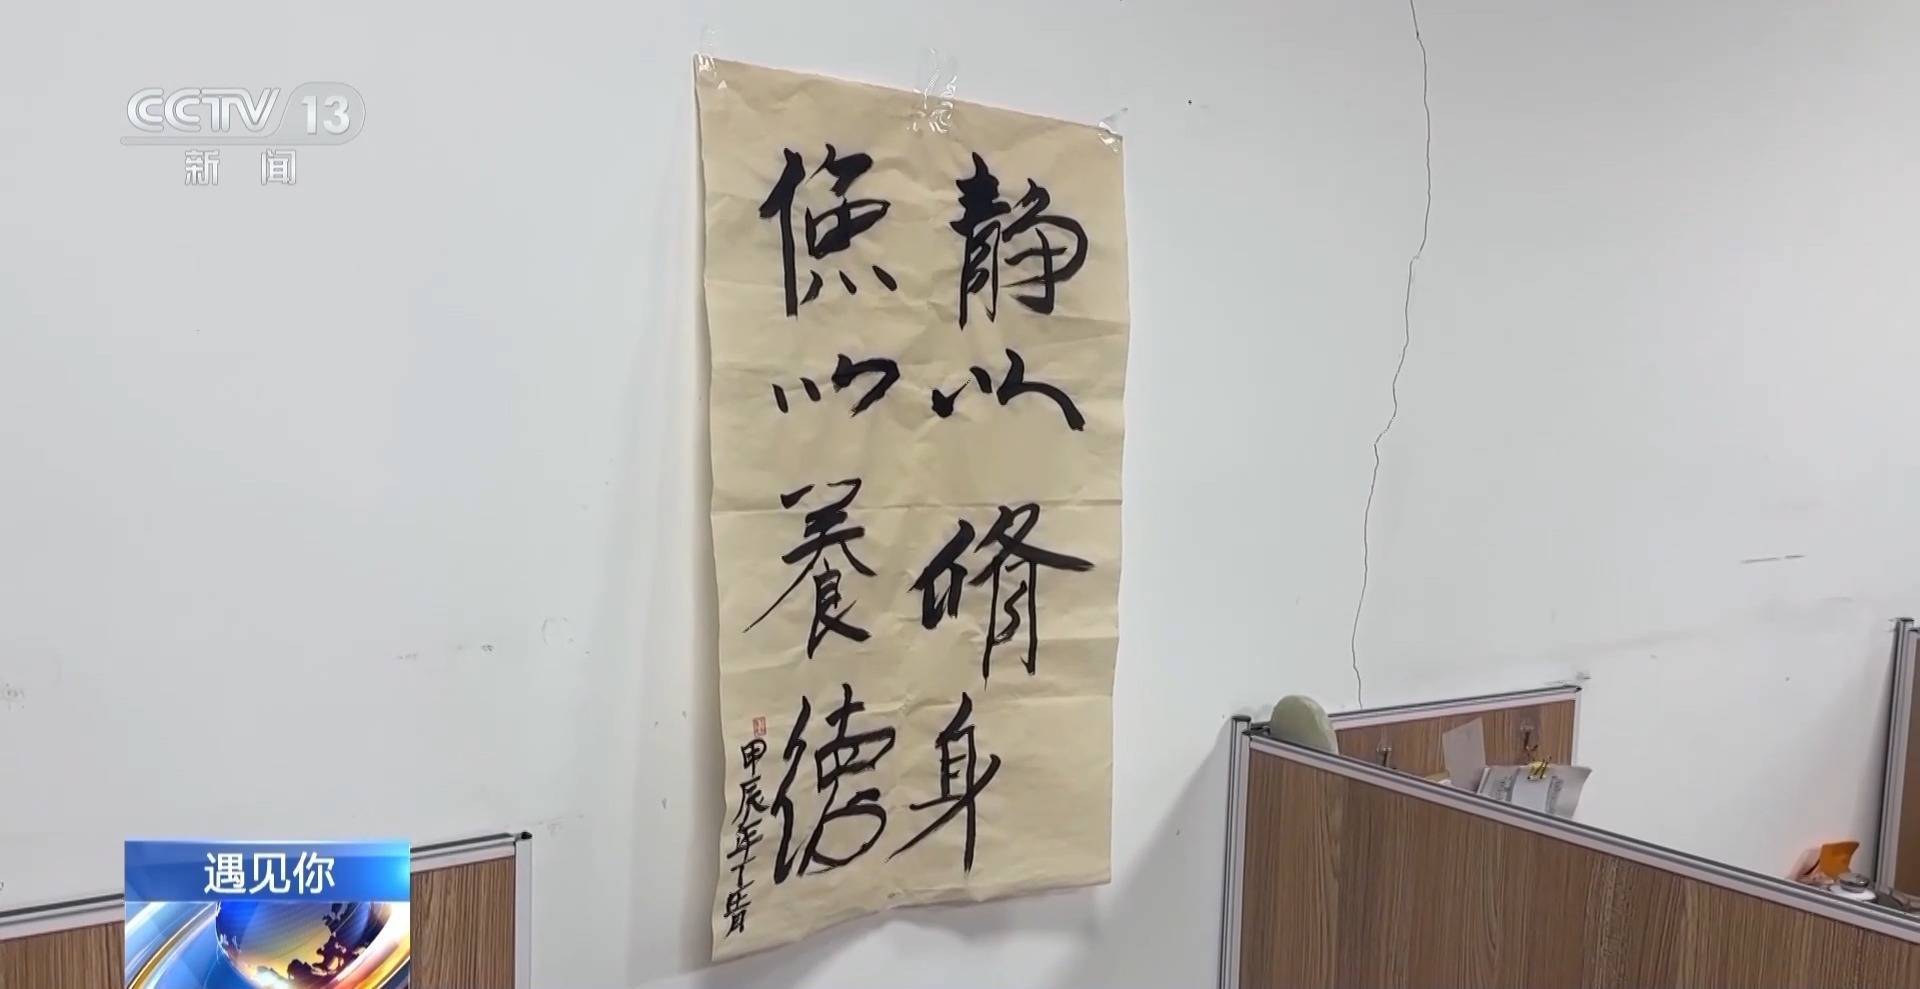 CCTV 13
新闻
静以修身
俭以養德
甲辰年丁
遇见你